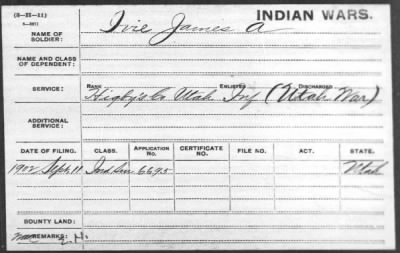 (3-III-11)
INDIAN WARS.
NAME OF SOLDIER: Ivie James A
NAME AND CLASS OF DEPENDENT:
SERVICE: RANK ENLISTED DISCHARGED
Higby's Co Utah Inf (Utah War)
ADDITIONAL SERVICE:
DATE OF FILING. CLASS. APPLICATION No. CERTIFICATE No. FILE NO. ACT. STATE.
1902 Sept 11 Ind Sur 6695 Utah
BOUNTY LAND:
REMARKS: